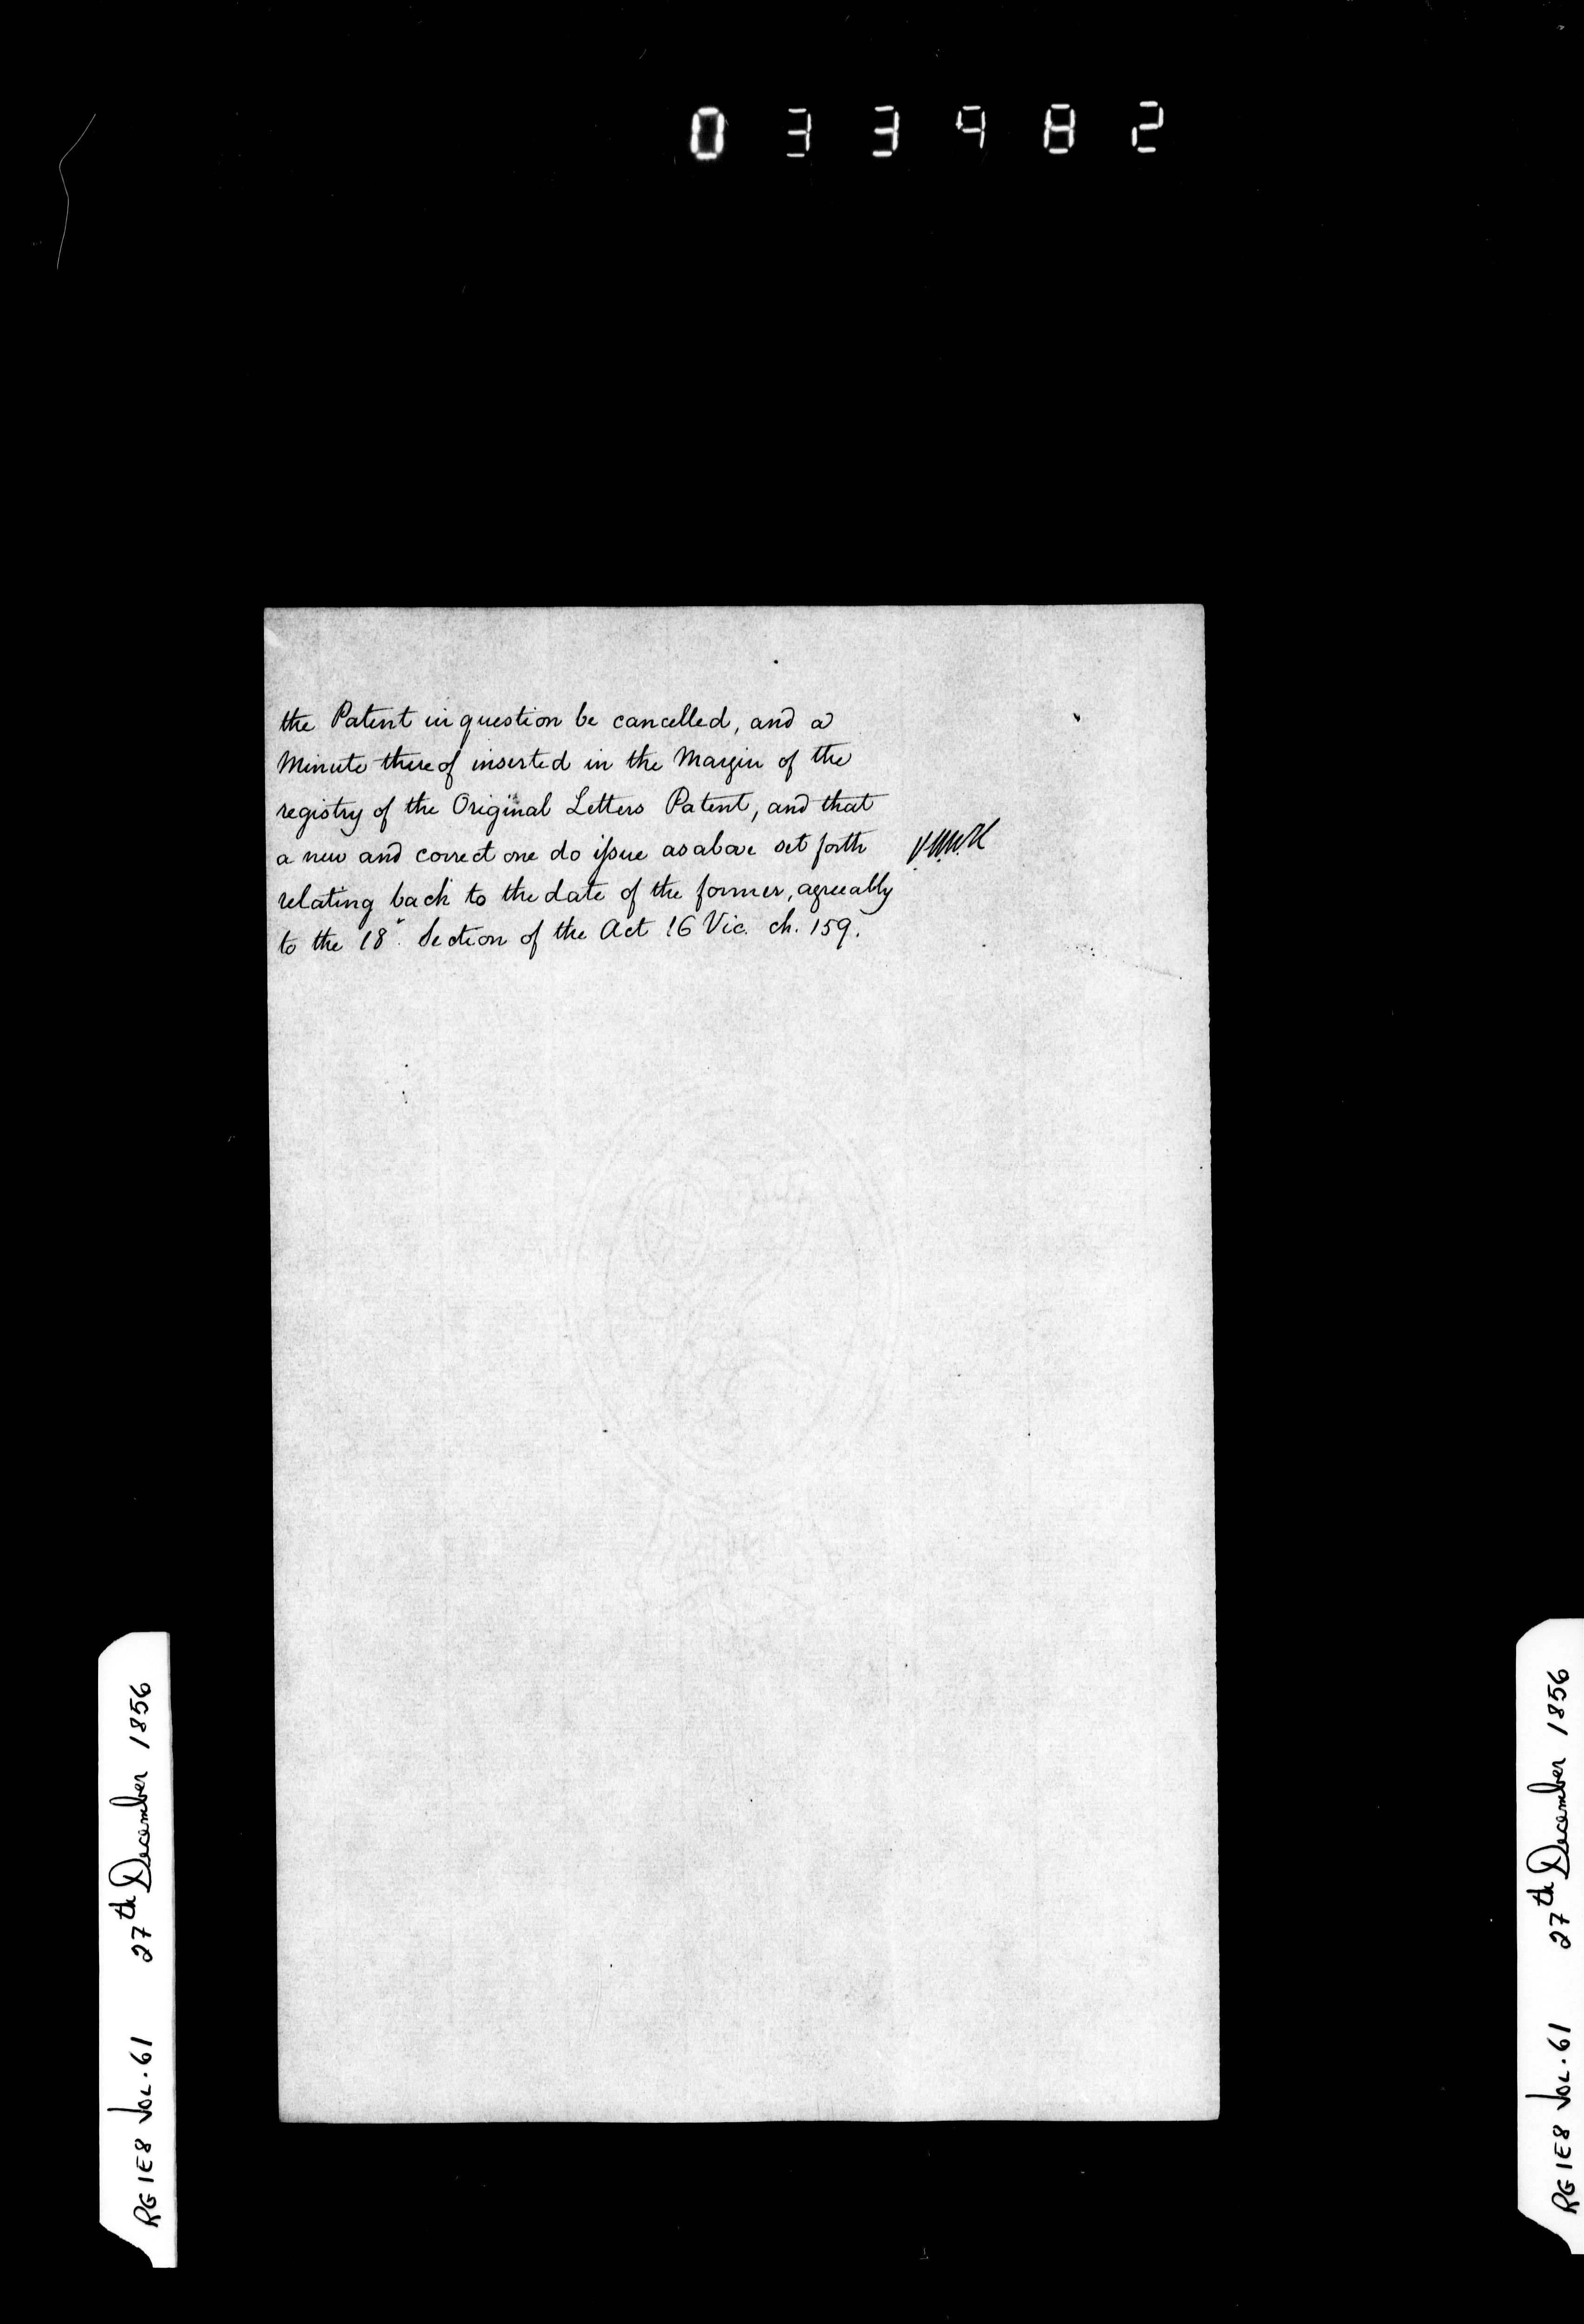 033982
the Patent in question be cancelled, and a
Minute thereof inserted in the Margin of the
registry of the Original Letters Patent, and that
a new and correct one do issue as above set forth
relating back to the date of the former, agreeably
to the 18" Section of the Act 16 Vic. ch. 159.
RG 1E8 VOL. 61 27th December 1856
RG 1E8 VOL. 61 27th December 1856